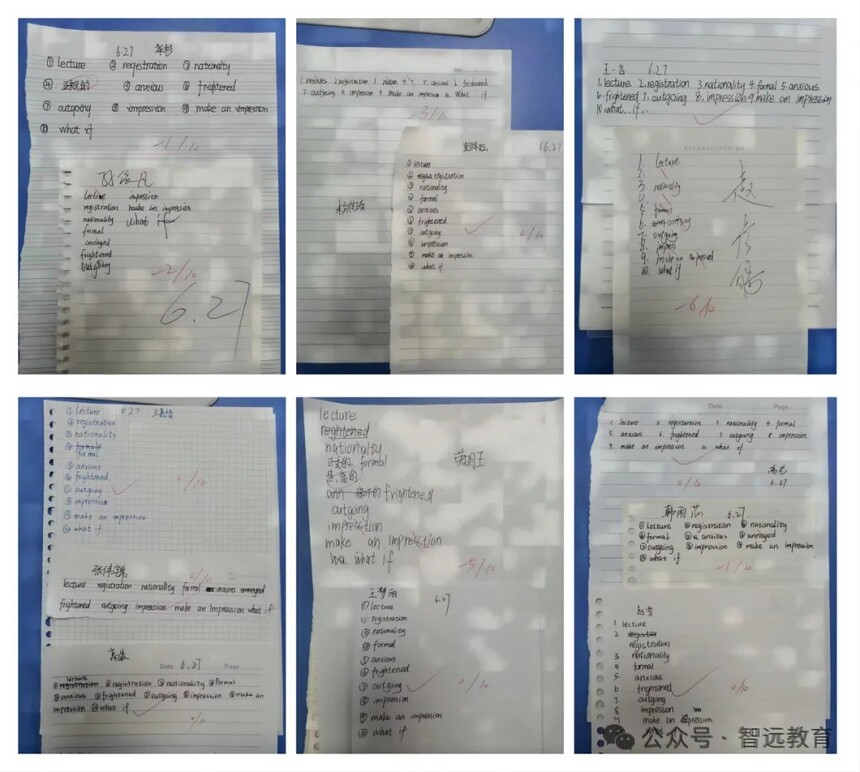 6.27
①lecture ②registration ③nationality
④正式的 ⑤anxious ⑥frightened
⑦outgoing ⑧impression ⑨make an impression
⑩what if
-1/10
lecture impression
registration make an impression
nationality what if
formal
annoyed
frightened
outgoing
-2/10
6.27
7. outgoing 8. impression 9. make an impression 10. what...if
-3/10
6.27
①lecture
②registration
③nationality
④formal
⑤anxious
⑥frightened
⑦outgoing
⑧impression
⑨make an impression
⑩what if
0/10
王一 6.27
1.lecture 2.registration 3.nationality 4.formal 5.anxious
6.frightened 7.outgoing 8.impression 9.make an impression
10.what...if...
1. lecture
2.
3. nationality
4.
5. formal
6.
7. outgoing
8. impress
9. make an
10. what if
-6/10
①lecture 6.27
②registration
③nationality
④formale
formal
⑤anxious
⑥frightened
⑦outgoing
⑧impression
⑨make an impression
⑩what if
0/10
张伟锦
0/10
lecture registration nationality formal anxious annoyed
frightened outgoing impression make an impression what if
Date: 6.27 Page:
lecture
①registration ②registration ③nationality ④formal
⑤anxious ⑥frightened ⑦outgoing ⑧impression ⑨make an
impression ⑩what if
0/10
lecture
reghtened
nationalty
正式的 formal
frightened
outgoing
impresstion
make an impresstion
what if
-5/10
王梦雨
6.27
①lecture
②registration
③nationality
④formal
⑤anxious
⑥frightened
⑦outgoing
⑧impression
⑨make an impression
⑩what if
0/10
Date Page
1. lecture 2. registration 3. nationality 4. formal
5. anxious 6. frightened 7. outgoing 8. impression
9. make an impression 10. what if
0/10
6.27
韩雨芯 6.27
①lecture ②registration ③nationality
④formal ⑤anxious ⑥annoyed
⑦outgoing ⑧impression ⑨make an impression
⑩what if
-1/10
1. lecture
2. registration
3. nationality
4. formal
5. anxious
6. frightened
7. outgoing
8. impression
9. make an impression
0/10
公众号 · 智远教育